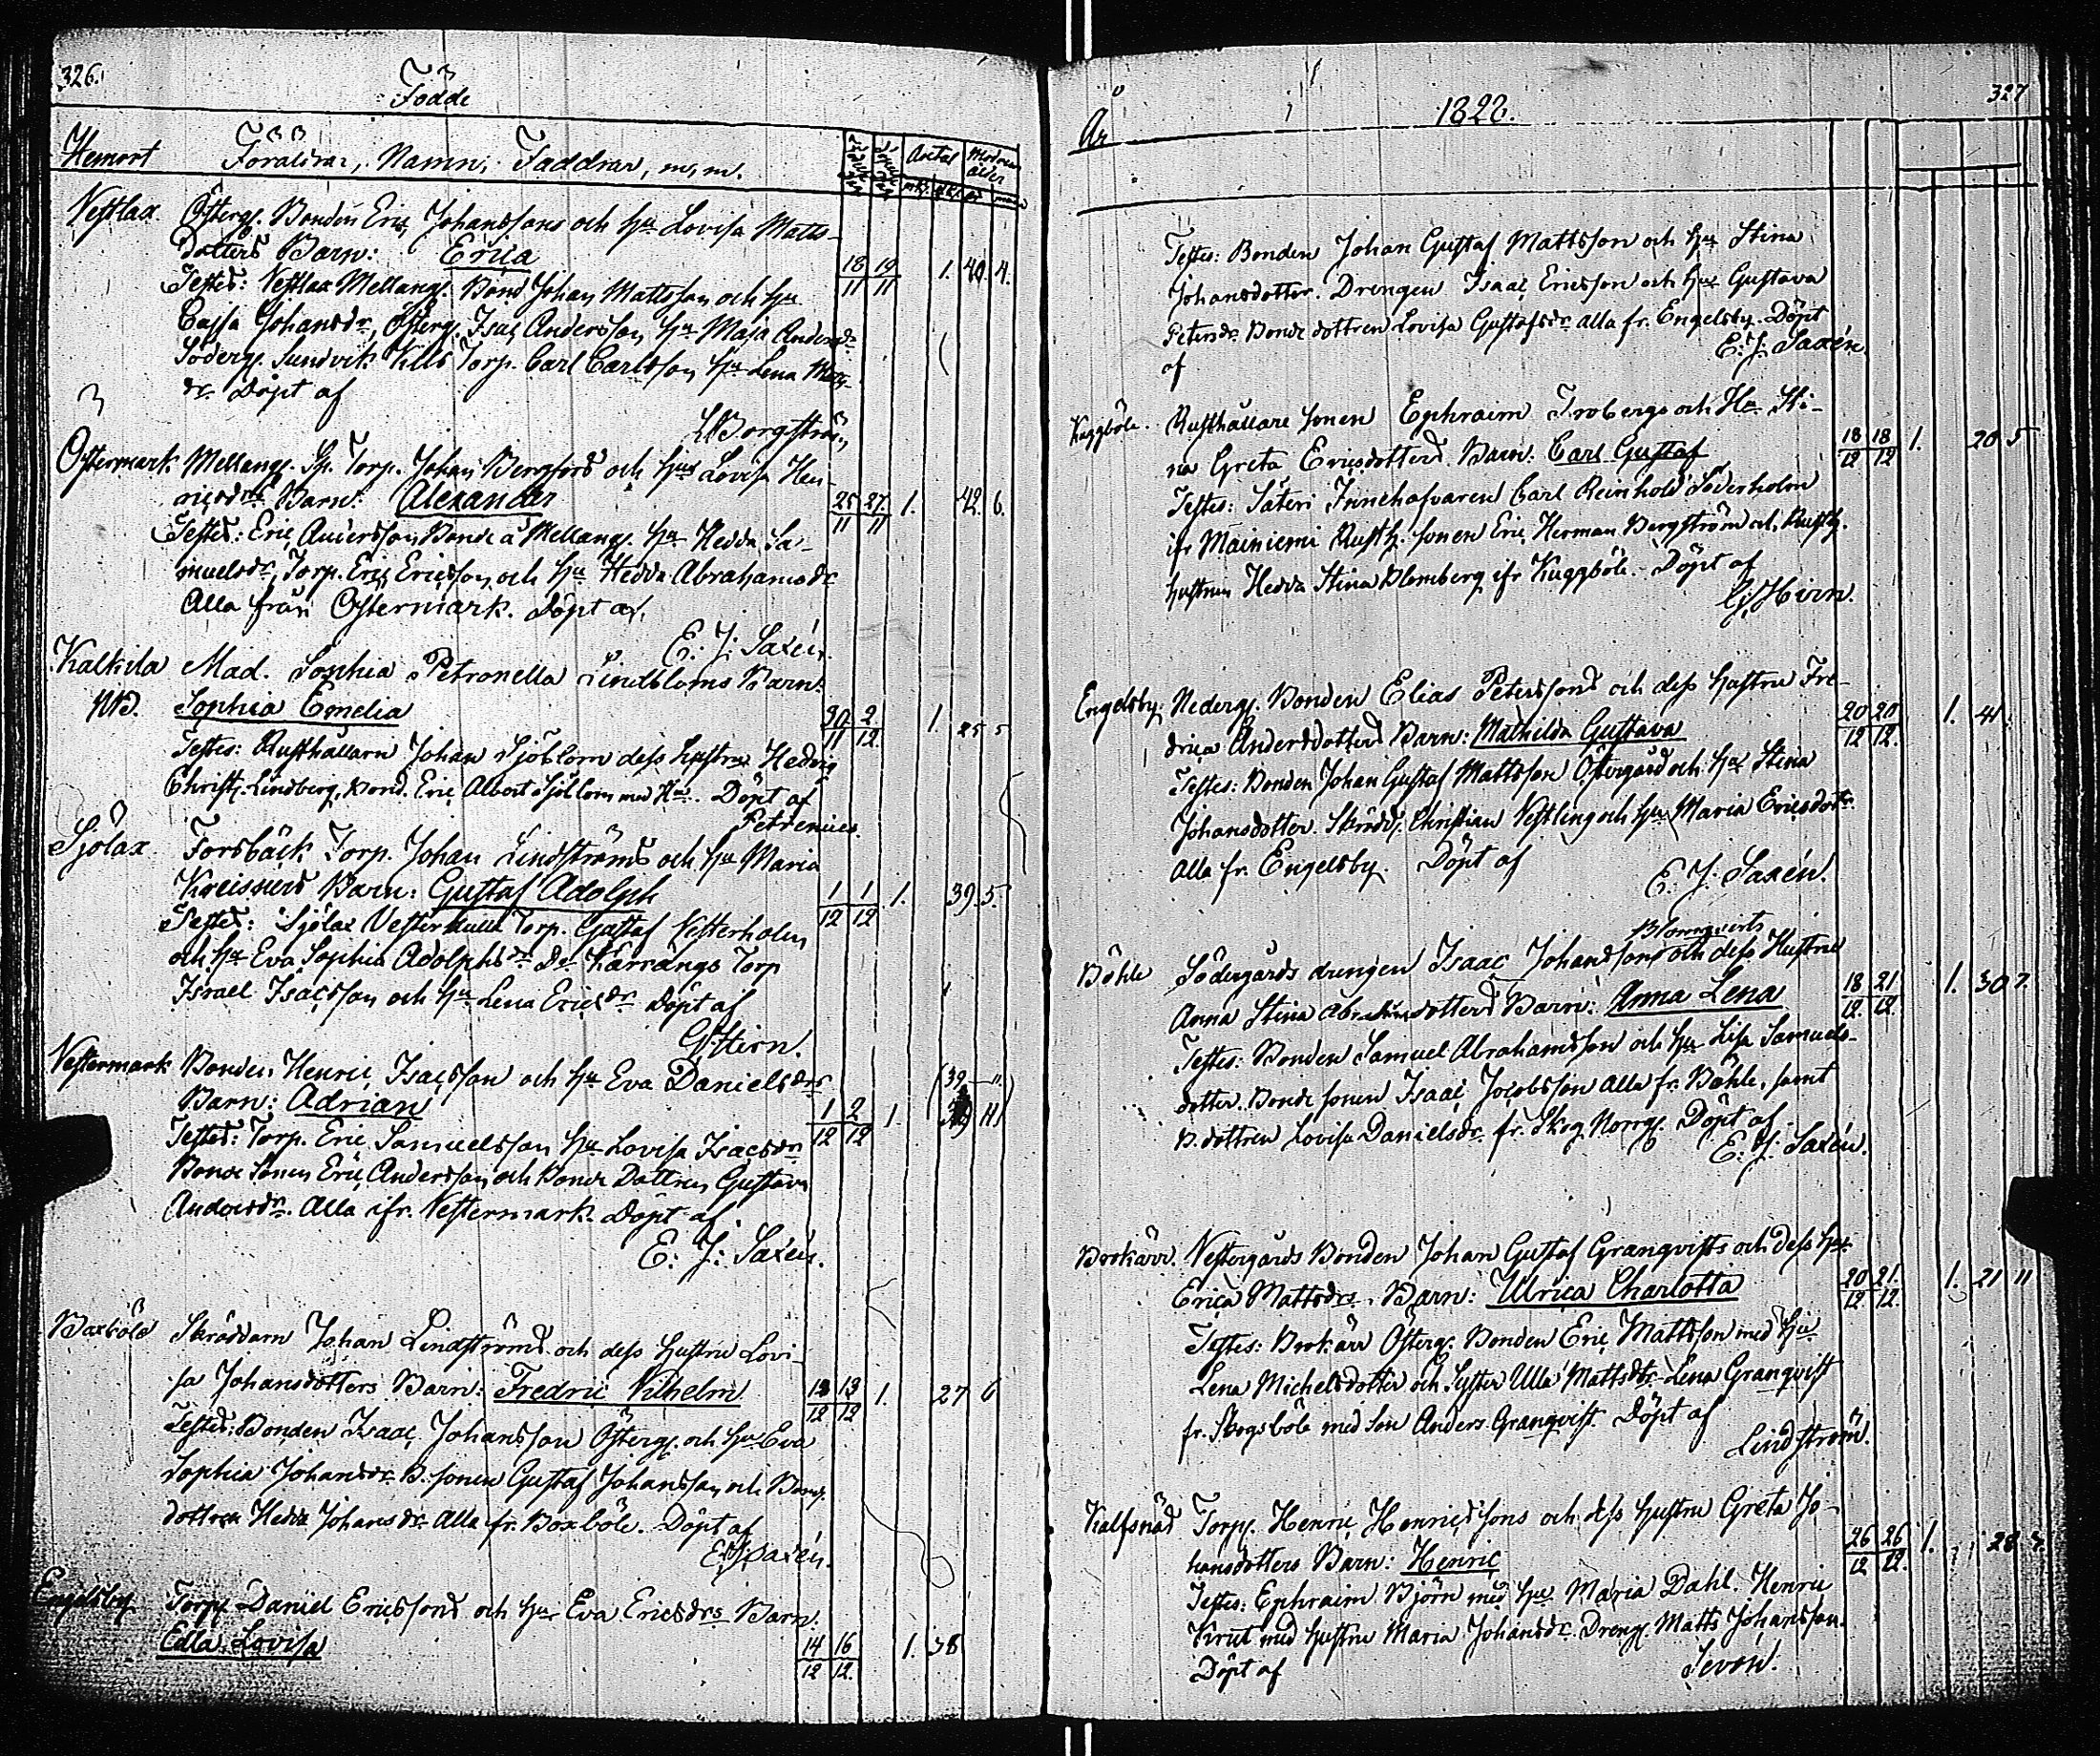 326.
Födde
Hemort Föräldrar, Namn, Faddrar, m, m. Antal Modrens ålder
Vestlax. Österg. Bonden Eric Johanssons och hu Lovisa Matts-
dotters Barn: Erica 18/11 19/11 1. 40. 4.
Testes: Vestlax Mellang. Bond Johan Mattsson och hu
Cajsa Johansdr, Österg. Isac Andersson, hu Maja Andersdr
Söderg. Sundvik Torp. Carl Carlsson hu Lena
dr Döpt af
Borgström
Östermark Mellang. Torp. Johan Bergfors och hu Lovisa Hen-
ricsdrs Barn: Alexander 25/11 27/11 1. 42. 6.
Testes: Eric Andersson Bonde å Mellang. hu Hedda Sa-
muelsdr, Torp. Eric Ericsson och hu Hedda Abrahamsdr
Alla från Östermark. Döpt af
E. J. Saxén.
Kalkila Mad. Sophia Petronella Lindbloms Barn:
Sophia Emelia 30/11 2/12 1. 25 5
Testes: Rusthållarn Johan Sjöblom dess hustru Hedvig
Christ. Lindberg, Bond. Eric Albert Sjöblom med Hu. Döpt af
Petrenius.
Sjölax Forsbäck Torp. Johan Lindströms och hu Maria
Barn: Gustaf Adolph 1/12 1/12 1. 39. 5.
Testes: Sjölax Torp. Gustaf Vesterholm
och hu Eva Sophia Adolphsdr Do Kärrängs Torp
Israel Isacsson och hu Lena Ericsdr Döpt af
G Hirn.
Vestermark Bonden Henric Isacsson och hu Eva Danielsdrs (39 — ")
Barn: Adrian 1/12 2/12 1.
Testes: Torp. Eric Samuelsson hu Lovisa Isacsdr
Bonde Sonen Eric Andersson och Bonde Dottren Gustava
Andersdr. Alla ifr. Vestermark. Döpt af
E. J. Saxén.
Boxböle Skräddarn Johan Lindströms och dess hustru Lovi-
sa Johansdotters Barn: Fredric Vilhelm 13/12 1. 27 6
Testes: Bonden Isaac Johansson Österg. och hu Eva
Sophia Johansdr B. sonen Gustaf Johansson och Bond.
dottren Hedda Johansdr Alla fr. Boxböle. Döpt af
E J Saxén.
Engelsby Torp. Daniel Ericssons och hu Eva Ericsdrs Barn.
Edla Lovisa 14/12 16/12 1. 38
327
År 1828.
Testes: Bonden Johan Gustaf Mattsson och hu Stina
Johansdotter. Drengen Isaac Ericsson och hu Gustava
Petersdr Bonde dottren Lovisa Gustafsdr alla fr. Engelsby. Döpt
af E. J. Saxén.
Kuggböle. Rusthållare sonen Ephraim Frobergs och Hu Sti-
na Greta Ericsdotters Barn: Carl Gustaf 18/12 18/12 1. 20 5
Testes: Säteri Innehafvaren Carl Reinhold Söderholm
ifr Mainiemi Rusth. sonen Eric Herman Bergström och Rusth.
hustrun Hedda Stina Blomberg ifr Kuggböle. Döpt af
G Hirn.
Engelsby. Nederg. Bonden Elias Peterssons och dess hustru Fre-
drica Andersdotters Barn: Mathilda Gustava 20/12 20/12 1. 41.
Testes: Bonden Johan Gustaf Mattsson Östergård och hu Stina
Johansdotter. Skrädd. Christian Vestling och hu Maria Ericsdotter
Alla fr. Engelsby. Döpt af
E. J. Saxén.
Blomqvists
Böhle Södergårds drengen Isaac Johanssons och dess Hustru
Anna Stina Abrahamsdotters Barn: Anna Lena 18/12 21/12 1. 30 7.
Testes: Bonden Samuel Abrahamsson och hu Lisa Samuels-
dotter. Bonde sonen Isaac Jacobsson alla fr. Böhle, samt
B. dottren Lovisa Danielsdr fr. Skog Norrg. Döpt af
E. J. Saxén.
Brokärr. Vestergårds Bonden Johan Gustaf Granqvists och dess hu
Erica Mattsdrs Barn: Ulrica Charlotta 20/12 21/12 1. 21 11
Testes: Brokärr Österg. Bonden Eric Mattsson med hu
Lena Michelsdotter och Syster Ulla Mattsdr Lena Granqvist
fr. Skogsböle med Son Anders Granqvist. Döpt af
Lindström.
Kalfsnäs Torp. Henric Henricssons och dess hustru Greta Jo-
hansdotters Barn: Henric 26/12 26/12 1. 28
Testes: Ephraim Björn med hu Maria Dahl. Henric
Krut med hustru Maria Johansdr Dreng. Matts Johansson.
Döpt af Sevon.